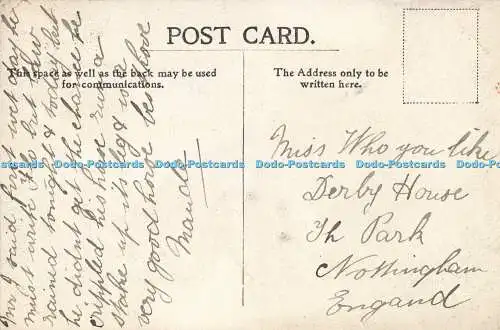 POST CARD.
This space as well as the back may be used
for communications.
The Address only to be
written here.
said first wet day he
must write so but how
rained tonight & today but
he didnt get the chance he
crippled his horse ran a
stake up its leg &
very good horse best love
Maud
Miss Who you like
Derby House
Th Park
Nottingham
Engand
Dodo-Postcards Dodo-Postcards Dodo-Postcards Dodo-Postcards Dodo-Postcards Dodo-Postcards